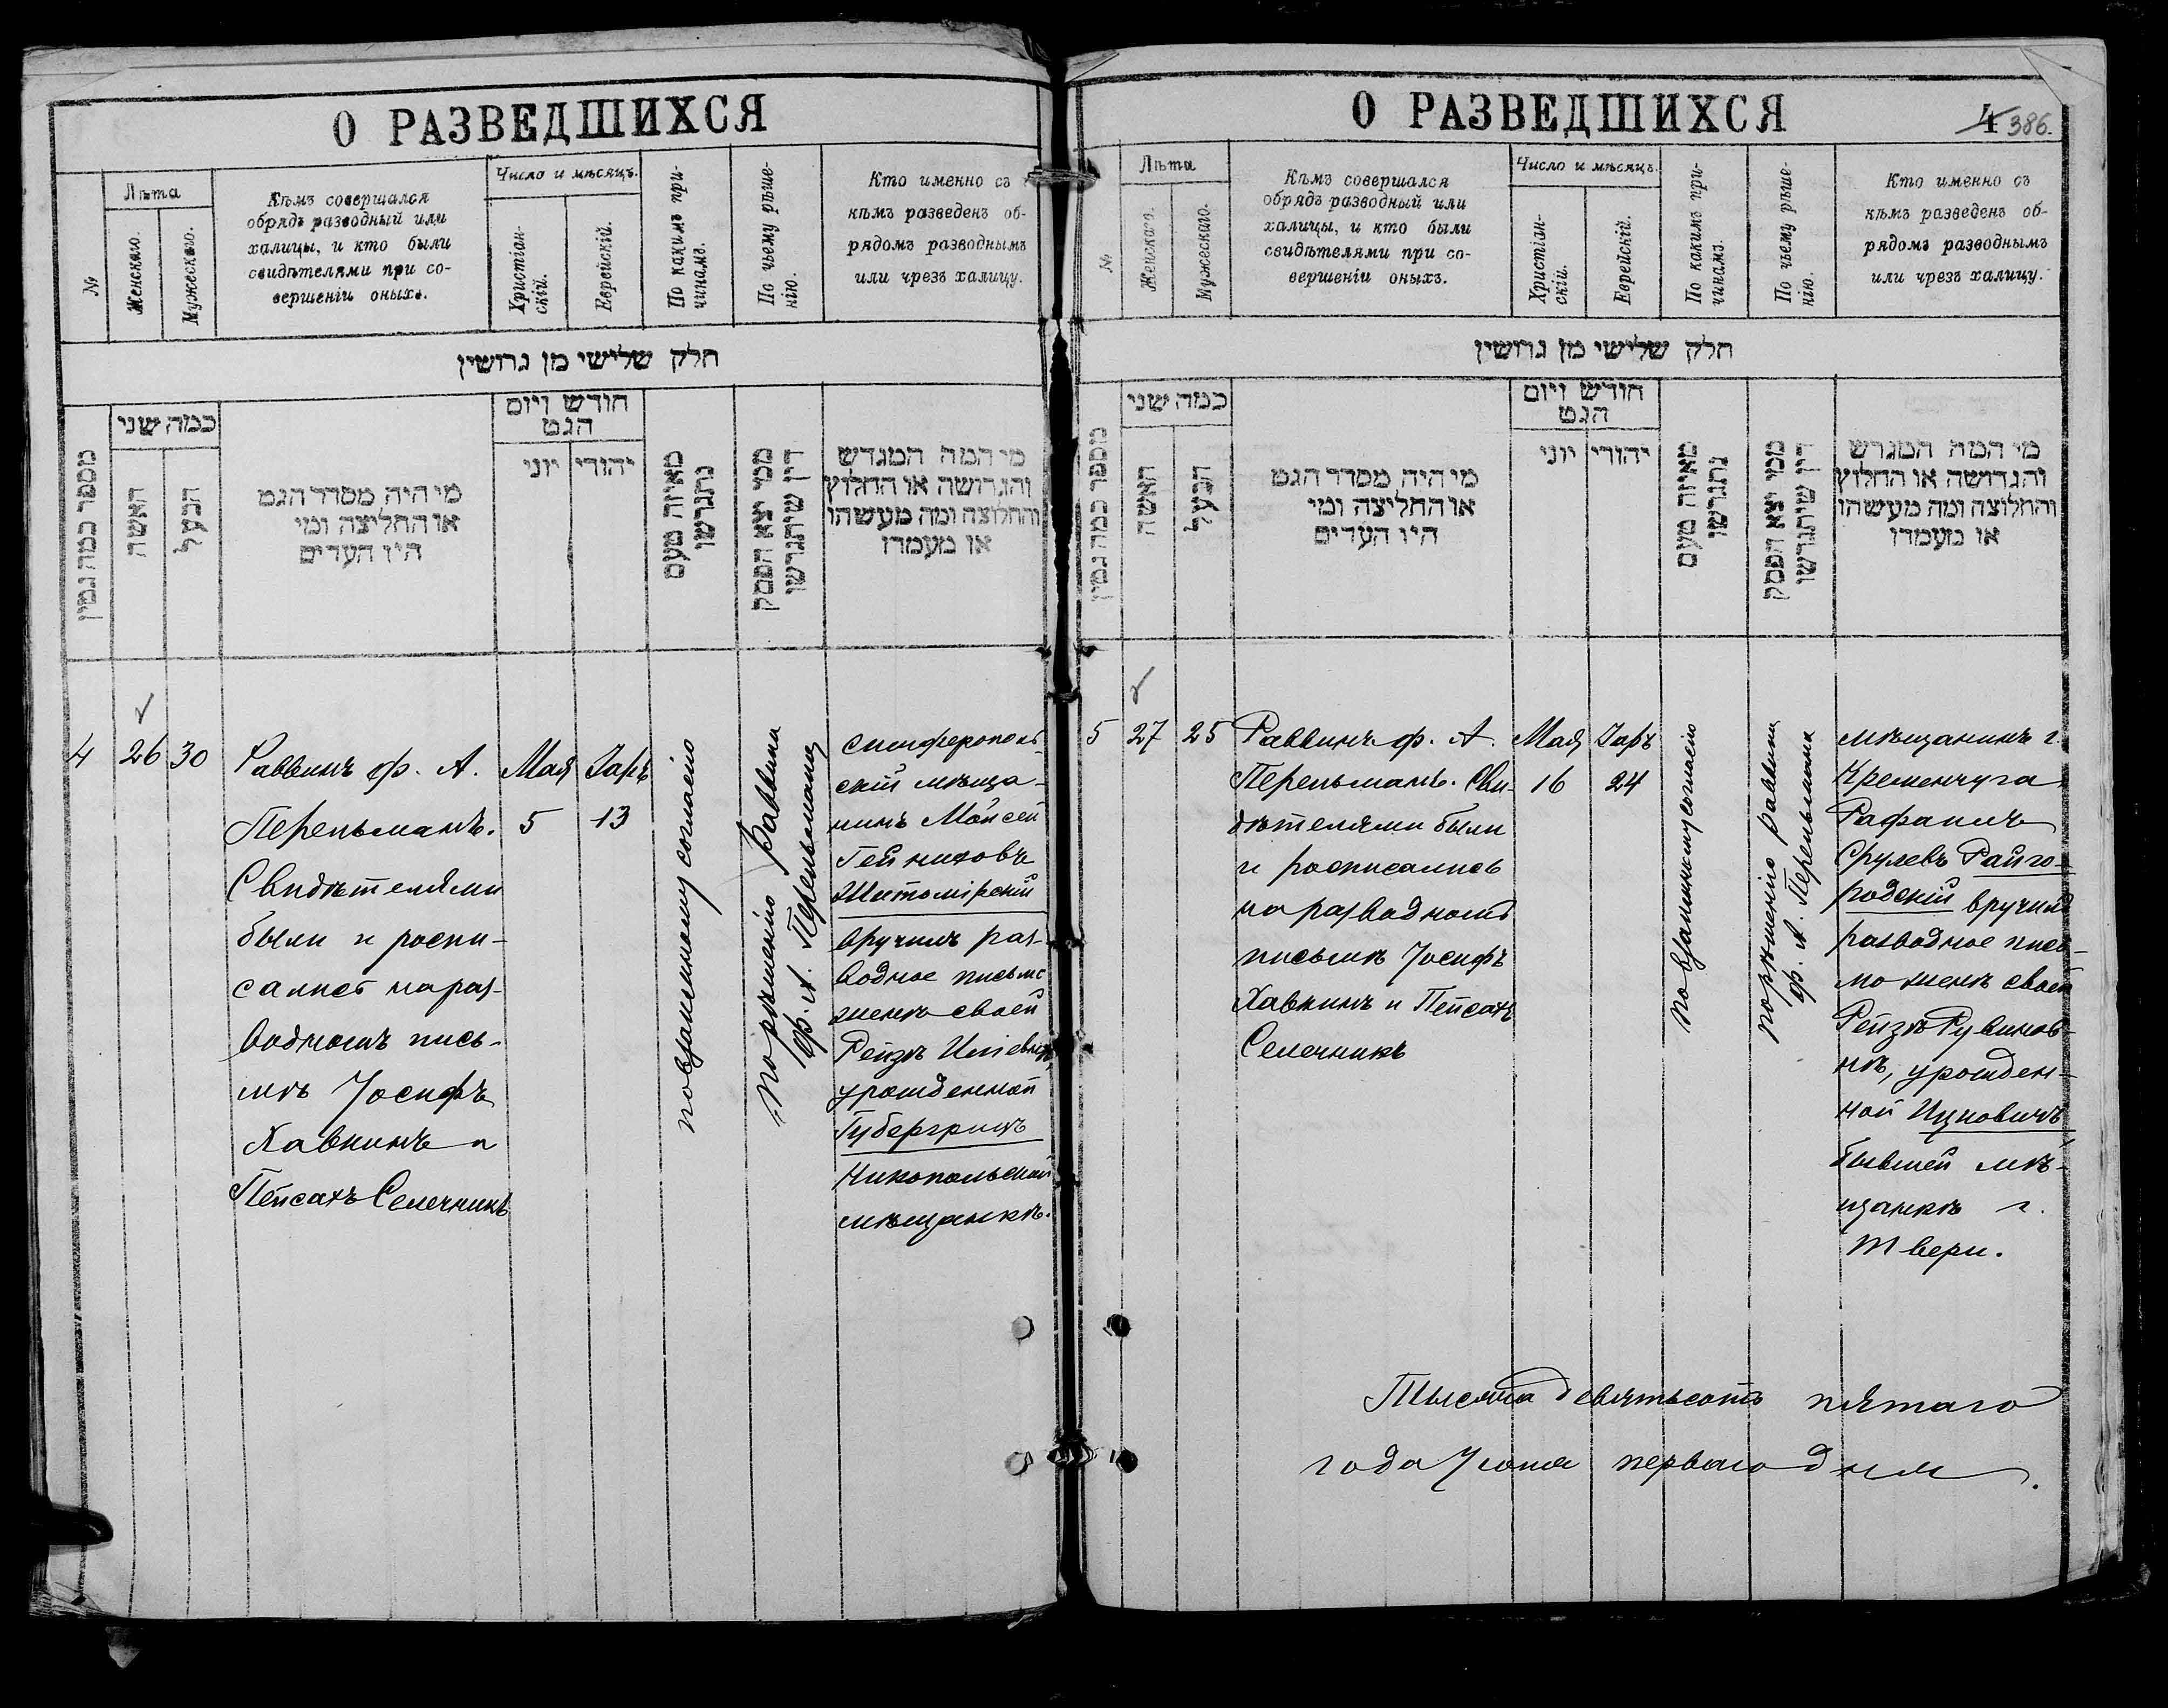 О РАЗВЕДШИХСЯ
№
Лѣта
Женскаго.
Мужескаго.
Кѣмъ совершался
обрядъ разводный или
халицы, и кто были
свидѣтелями при со-
вершеніи оныхъ.
Число и мѣсяцъ.
Христіан-
скій.
Еврейскій.
По какимъ при-
чинамъ.
По чьему рѣше-
нію.
Кто именно съ
кѣмъ разведенъ об-
рядомъ разводнымъ
или чрезъ халицу.
חלק שלישי מן גרושין
מספר כמה גטין
כמה שני
האשה
הבעל
מי היה מסדר הגט
או החליצה ומי
היו העדים
חודש ויום
הגט
יוני
יהודי
מאיזה טעם
נתגרשו
ממי יצא הפסק
דין שיתגרשו
מי המה המגרש
והגרושה או החלוץ
והחלוצה ומה מעשהו
או מעמדו
4
26
30
Раввинъ ф. А.
Перельманъ.
Свидѣтелями
были и роспи-
сались на раз-
водномъ пись-
мѣ Іосифъ
Хавкинъ и
Пейсахъ Селечникъ
Мая
5
Іаръ
13
по взаимному согласію
по рѣшенію Раввина
ф. А. Перельмана
симферополь-
скій мѣща-
нинъ Мойсей
Гейниховъ
Житомірскій
вручилъ раз-
водное письмо
женѣ своей
Рейзѣ Иліевнѣ,
урожденной
Губергрицъ
Никопольской
мѣщанкѣ.
О РАЗВЕДШИХСЯ
4 386.
№
Лѣта
Женскаго.
Мужескаго.
Кѣмъ совершался
обрядъ разводный или
халицы, и кто были
свидѣтелями при со-
вершеніи оныхъ.
Число и мѣсяцъ.
Христіан-
скій.
Еврейскій.
По какимъ при-
чинамъ.
По чьему рѣше-
нію.
Кто именно съ
кѣмъ разведенъ об-
рядомъ разводнымъ
или чрезъ халицу.
חלק שלישי מן גרושין
מספר כמה גטין
כמה שני
האשה
הבעל
מי היה מסדר הגט
או החליצה ומי
היו העדים
חודש ויום
הגט
יוני
יהודי
מאיזה טעם
נתגרשו
ממי יצא הפסק
דין שיתגרשו
מי המה המגרש
והגרושה או החלוץ
והחלוצה ומה מעשהו
או מעמדו
5
27
25
Раввинъ ф. А.
Перельманъ. Сви-
дѣтелями были
и росписались
на разводномъ
письмѣ Іосифъ
Хавкинъ и Пейсахъ
Селечникъ
Мая
16
Іаръ
24
по взаимному согласію
по рѣшенію раввина
ф. А. Перельмана
мѣщанинъ г.
Кременчуга
Рафаилъ
Срулевъ Райго-
родскій вручилъ
разводное пись-
мо женѣ своей
Рейзѣ Рувинов-
нѣ, урожден-
ной Ицковичъ
бывшей мѣ-
щанкѣ г.
Твери.
Тысяча девятьсотъ пятаго
года Іюня перваго дня.